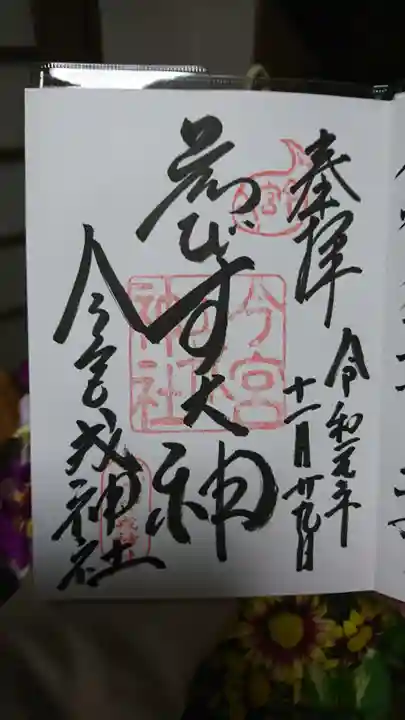 奉拝
令和元年
十一月廿九日
ゑびす大神
今宮戎神社
今宮戎神社